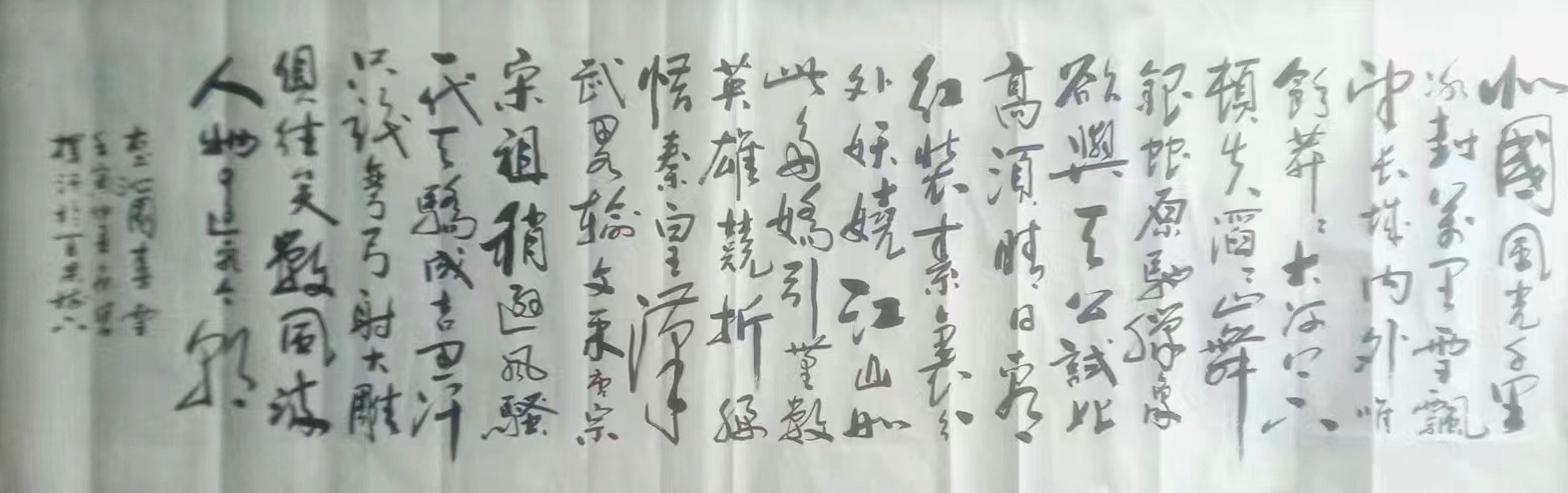 北國風光千里
冰封萬里雪飄
望长城内外唯
餘莽々大河上下
頓失滔々山舞
銀蛇原馳蠟象
欲與天公試比
高須晴日看
红裝素裹分
外妖嬈江山如
此多嬌引無數
英雄競折腰
惜秦皇漢
武畧输文采唐宗
宋祖稍遜風騷
一代天驕成吉思汗
只識彎弓射大雕
俱往矣數風流
人物還看今朝
沁園春雪
壬寅仲夏
揮汗於百